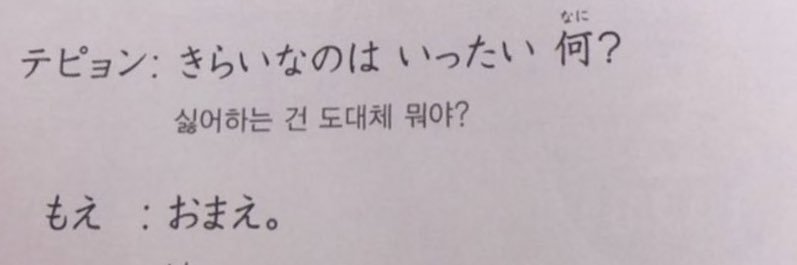 テピョン: きらいなのは いったい 何?
なに
싫어하는 건 도대체 뭐야?
もえ : おまえ。